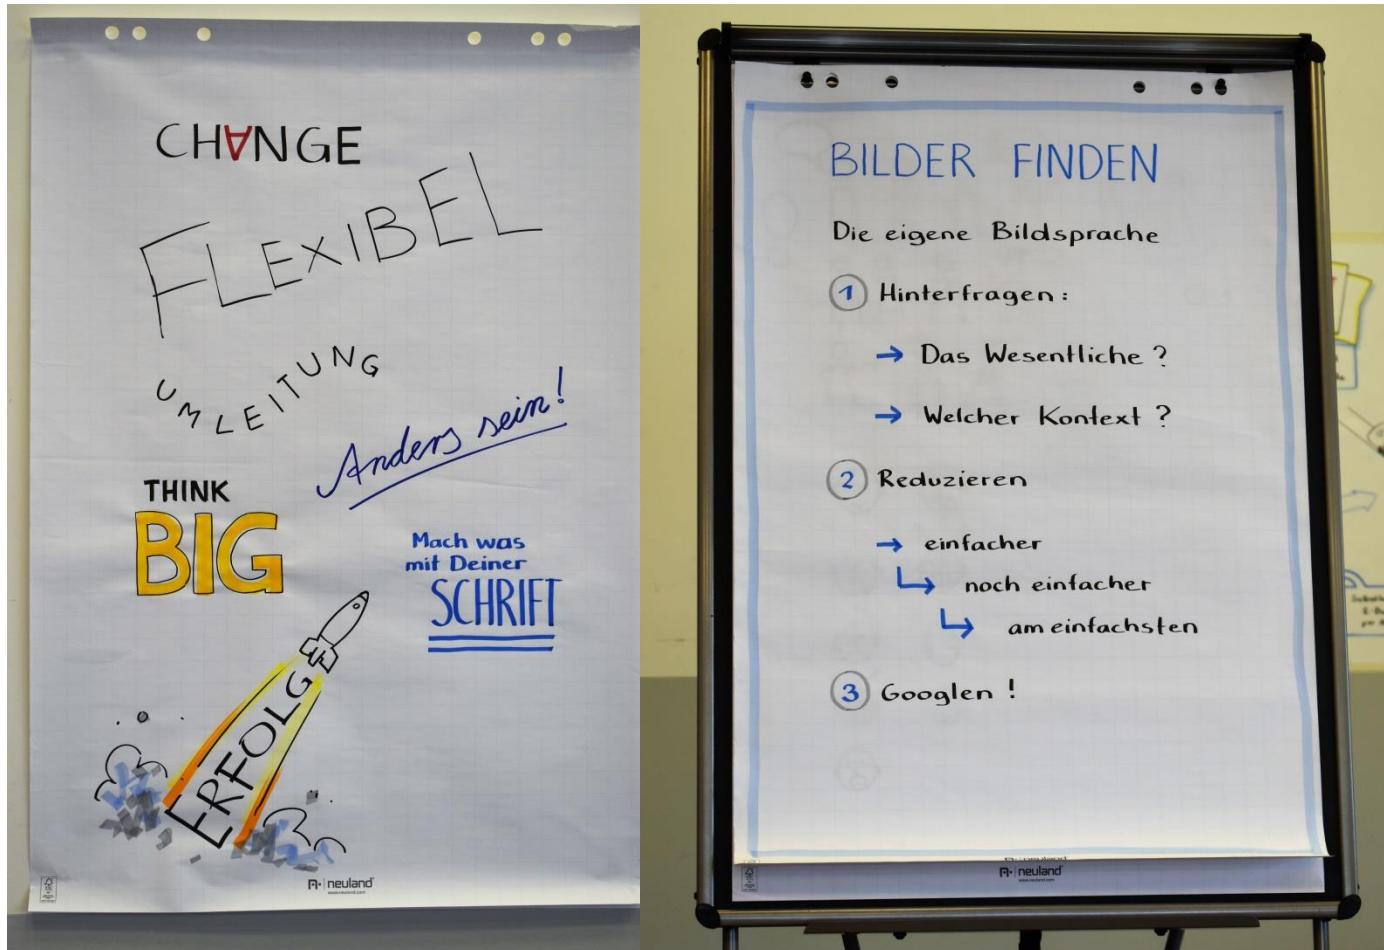 CHANGE
FLEXIBEL
UMLEITUNG
Anders sein!
THINK
BIG
Mach was
mit Deiner
SCHRIFT
ERFOLG
neuland
www.neuland.com
BILDER FINDEN
Die eigene Bildsprache
1 Hinterfragen:
→ Das Wesentliche?
→ Welcher Kontext?
2 Reduzieren
→ einfacher
noch einfacher
am einfachsten
3 Googlen!
neuland
www.neuland.com